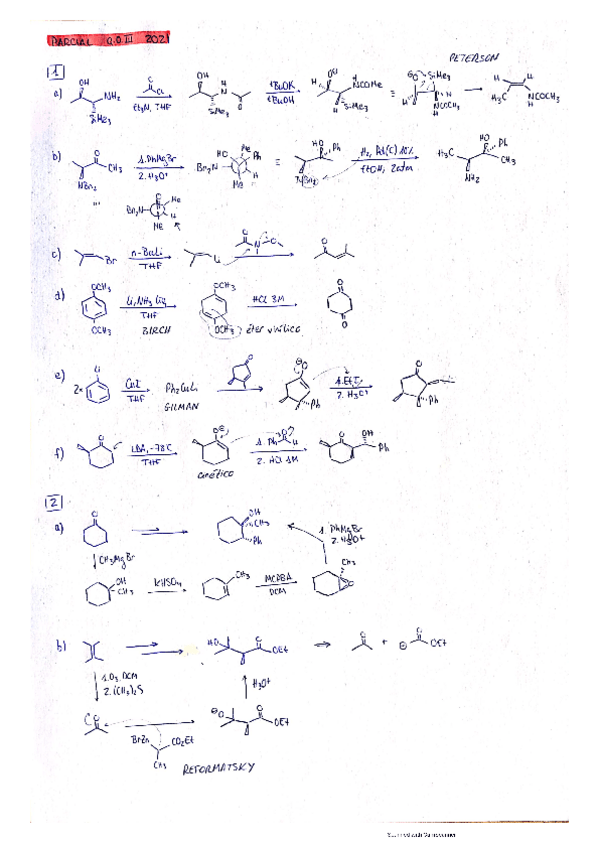 PARCIAL Q.O III 2021
PETERSON
1
a) OH NH2 SiMe3 Cl Et3N, THF OH SiMe3 tBuOK tBuOH H OH NCOMe H SiMe3 SiMe3 NCOCH3 H3C H NCOCH3
b) O CH3 NBn2 1. PhMgBr 2. H3O+ Bn2N HO Me Ph H Me HO Ph NBn2 H2, Pd(C) 10% EtOH, 2atm H3C HO Ph CH3 NH2
Bn2N Me H Me
c) Br n-BuLi THF Li
d) OCH3 OCH3 Li, NH3 liq THF BIRCH OCH3 OCH3 éter vinílico HCl 3M
e) 2x Li CuI THF Ph2CuLi GILMAN Ph 1. EtI 2. H3O+ Ph
f) LDA, -78C THF cinético 1. Ph H 2. HCl 1M OH Ph
2
a) OH CH3 Ph 1. PhMgBr 2. H3O+
CH3MgBr
OH CH3 KHSO4 CH3 MCPBA DCM CH3
b) HO OEt + OEt
1. O3 DCM
2. (CH3)2S
H3O+
OEt
BrZn CO2Et
CH3
REFORMATSKY
Scanned with CamScanner